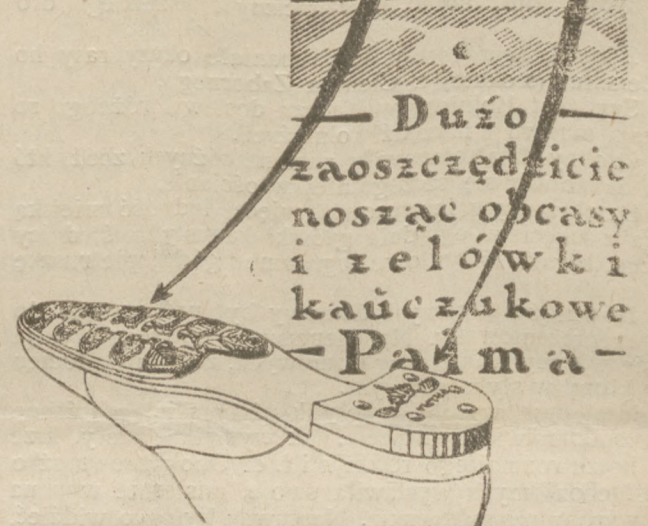 Dużo
zaoszczędzicie
nosząc obcasy
i zelówki
kauczukowe
Palma